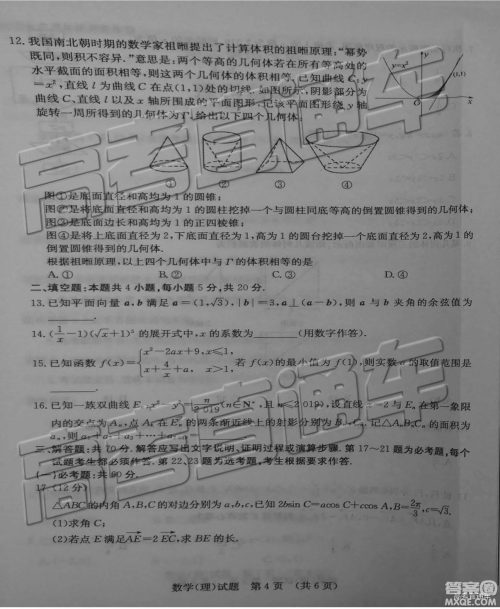 12. 我国南北朝时期的数学家祖暅提出了计算体积的祖暅原理:"幂势
既同,则积不容异."意思是:两个等高的几何体若在所有等高处的
水平截面的面积相等,则这两个几何体的体积相等.已知曲线 C:y
=x²,直线 l 为曲线 C 在点(1,1)处的切线.如图所示,阴影部分为
曲线 C、直线 l 以及 x 轴所围成的平面图形.记该平面图形绕 y 轴
旋转一周所得的几何体为 Γ.给出以下四个几何体:
y
y=x²
(1,1)
O
x
① ② ③ ④
图①是底面直径和高均为 1 的圆锥;
图②是将底面直径和高均为 1 的圆柱挖掉一个与圆柱同底等高的倒置圆锥得到的几何体;
图③是底面边长和高均为 1 的正四棱锥;
图④是将上底面直径为 2,下底面直径为 1,高为 1 的圆台挖掉一个底面直径为 2,高为 1 的
倒置圆锥得到的几何体.
根据祖暅原理,以上四个几何体中与 Γ 的体积相等的是
A. ① B. ② C. ③ D. ④
二、填空题:本题共 4 小题,每小题 5 分,共 20 分.
13. 已知平面向量 a,b 满足 a=(1,√3),|b|=3,a⊥(a−b),则 a 与 b 夹角的余弦值为
14. (1/x−1)(√x+1)⁵ 的展开式中,x 的系数为 (用数字作答).
15. 已知函数 f(x)={x²−2ax+9,x≤1, x+4/x+a, x>1, 若 f(x)的最小值为 f(1),则实数 a 的取值范围是
16. 已知一族双曲线 Eₙ:x²−y²=n/2 019(n∈N*,且 n≤2 019),设直线 x=2 与 Eₙ 在第一象限
内的交点为 Aₙ,点 Aₙ 在 Eₙ 的两条渐近线上的射影分别为 Bₙ,Cₙ.记△AₙBₙCₙ 的面积为
三、解答题:共 70 分.解答应写出文字说明、证明过程或演算步骤.第 17~21 题为必考题,每个
试题考生都必须作答.第 22,23 题为选考题,考生根据要求作答.
(一)必考题:共 60 分.
17.(12 分)
△ABC 的内角 A,B,C 的对边分别为 a,b,c,已知 2bsin C=acos C+ccos A,B=2π/3,c=√3.
(1)求角 C;
(2)若点 E 满足AE=2EC,求 BE 的长.
数学(理)试题 第 4 页 (共 6 页)
高考直通车
高考直通车
高考直通车
答案圈